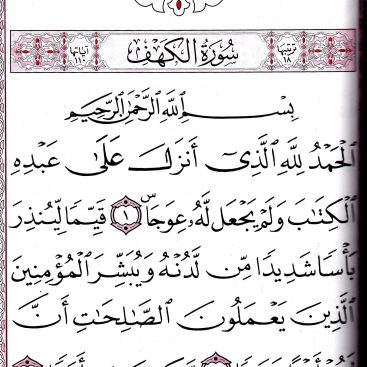 ترتيبها ١٨ سُورَةُ الكَهْفِ آياتها ١١٠
بِسْمِ اللَّهِ الرَّحْمَٰنِ الرَّحِيمِ
الْحَمْدُ لِلَّهِ الَّذِي أَنزَلَ عَلَىٰ عَبْدِهِ
الْكِتَابَ وَلَمْ يَجْعَل لَّهُ عِوَجَاۜ ١ قَيِّمًا لِّيُنذِرَ
بَأْسًا شَدِيدًا مِّن لَّدُنْهُ وَيُبَشِّرَ الْمُؤْمِنِينَ
الَّذِينَ يَعْمَلُونَ الصَّالِحَاتِ أَنَّ